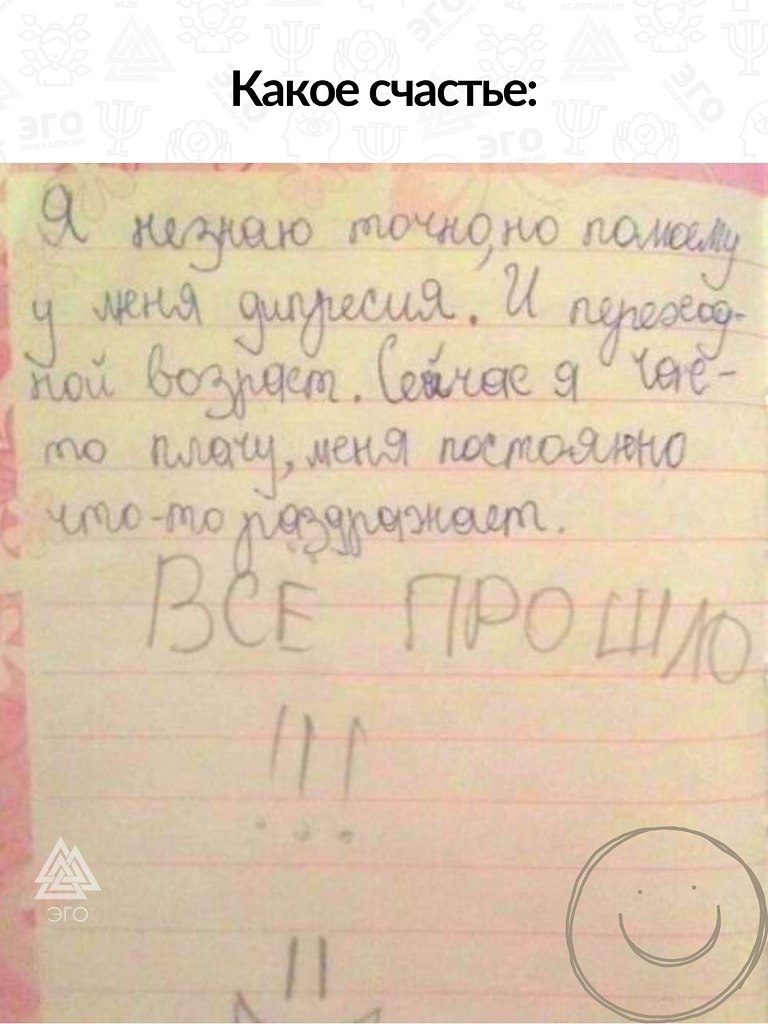 Какое счастье:
Я незнаю точно, но помоему
у меня дипресия. И переход-
ной возраст. Сейчас я час-
то плачу, меня постоянно
что-то раздражает.
ВСЁ ПРОШЛО
!!!
ЭГО